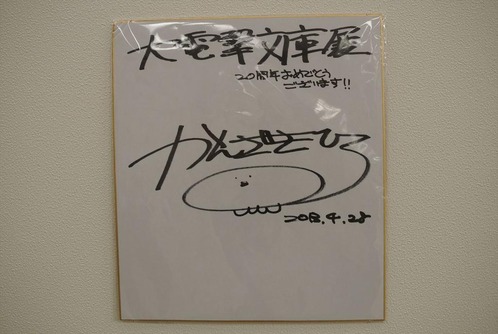 大電撃文庫展
20周年おめでとう
ございます!!
かんざきひろ
2013.4.28